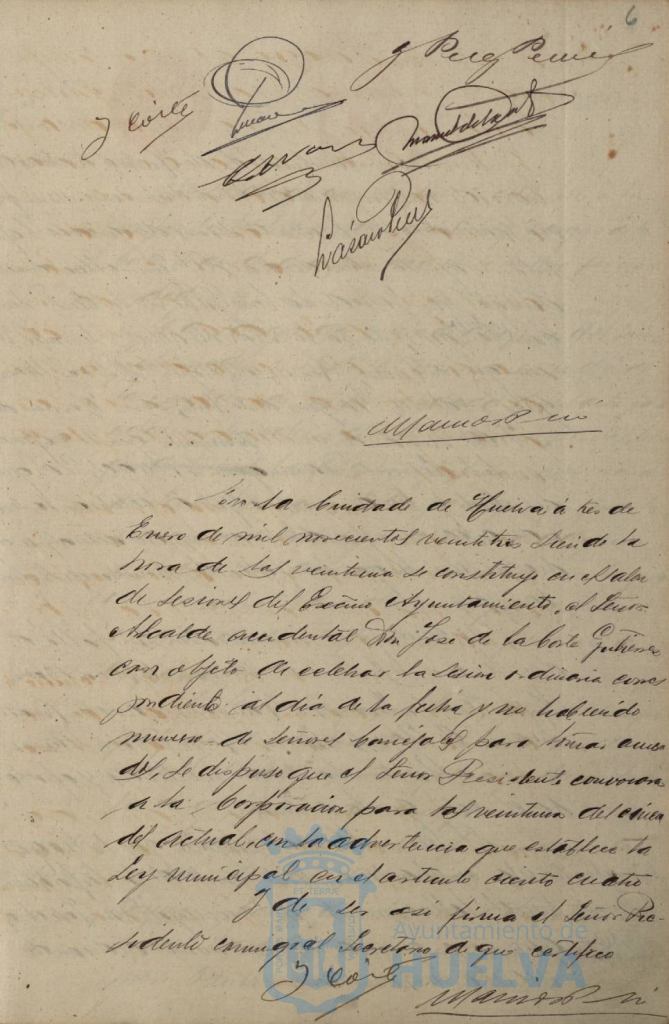 6
J Corte
En la Ciudad de Huelva á tres de
Enero de mil novecientos veintitres siendo la
hora de las veintiuna se constituyo en el Salon
de Sesiones del Excmo Ayuntamiento, el Señor
Alcalde accidental Don Jose de la Corte Gutierrez
con objeto de celebrar la sesion ordinaria corres
pondiente al dia de la fecha y no habiendo
numero de Señores Concejales para tomar acuer
dos, se dispuso que el Señor Presidente convocara
a la Corporacion para las veintiuna del cinco
del actual, con la advertencia que establece la
Ley municipal en el articulo ciento cuatro
Y de ser asi firma el Señor Pre-
sidente conmigo el Secretario de que certifico
J Corte
Ayuntamiento de
HUELVA